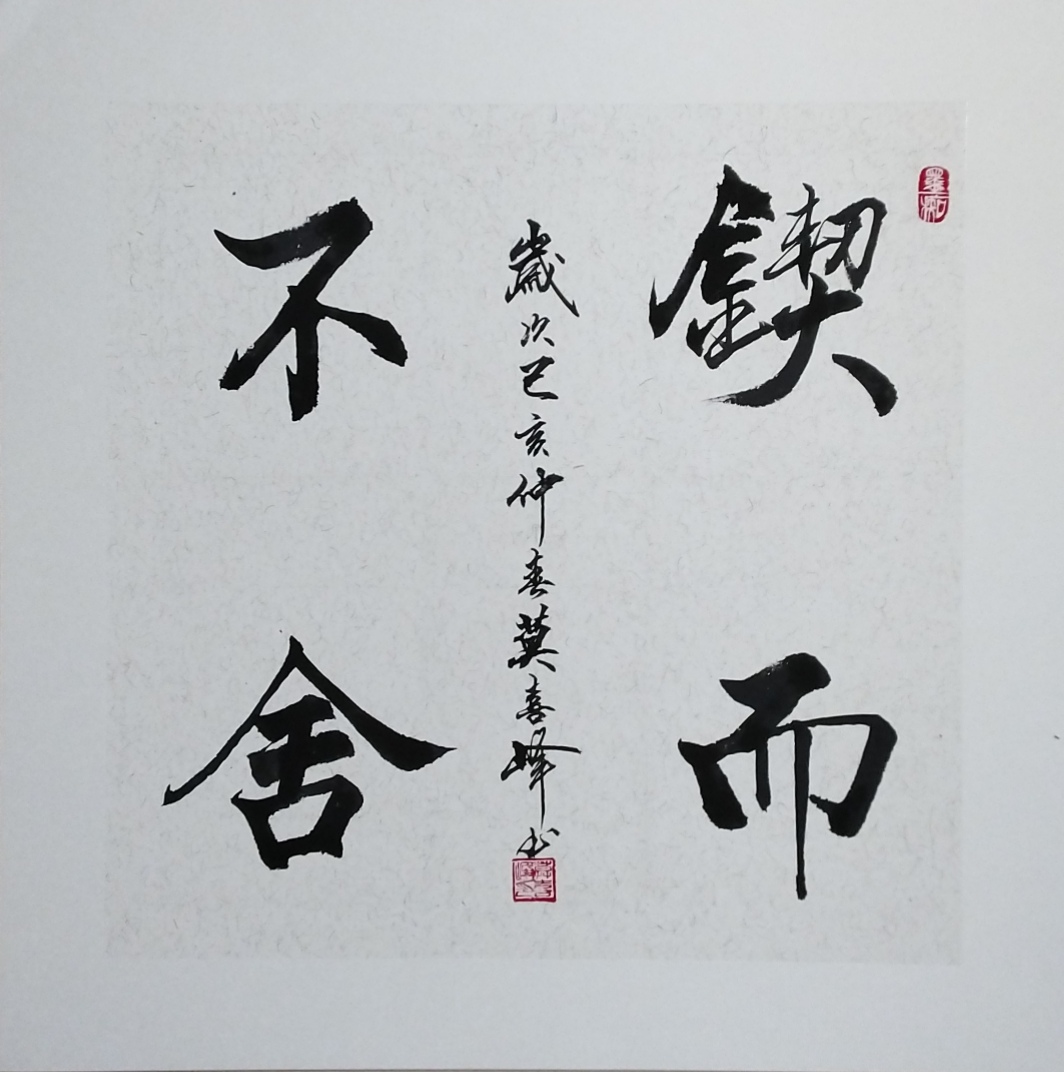 鍥而
不舍
歲次己亥仲春喜峰书